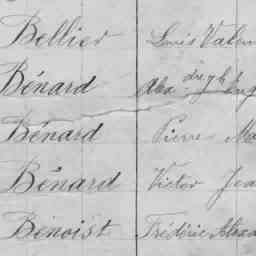 Bellier Louis Valen
Bénard Alex. dre
Bénard Pierre Ma
Bénard Victor Jea
Benoist Frédéric Alexa